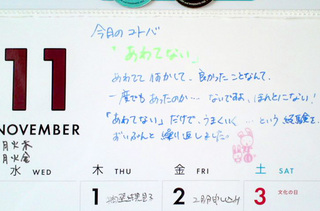 今月のコトバ
「あわてない」
あわてて 何かして、良かったことなんて、
一度でもあったのか… ないですよ、ほんとにない!
「あわてない」だけで、うまくいく …という経験を、
ずいぶんと繰り返しました。
11
NOVEMBER
月火木
月火金
水 WED
木 THU
金 FRI
土 SAT
1
2
3 文化の日